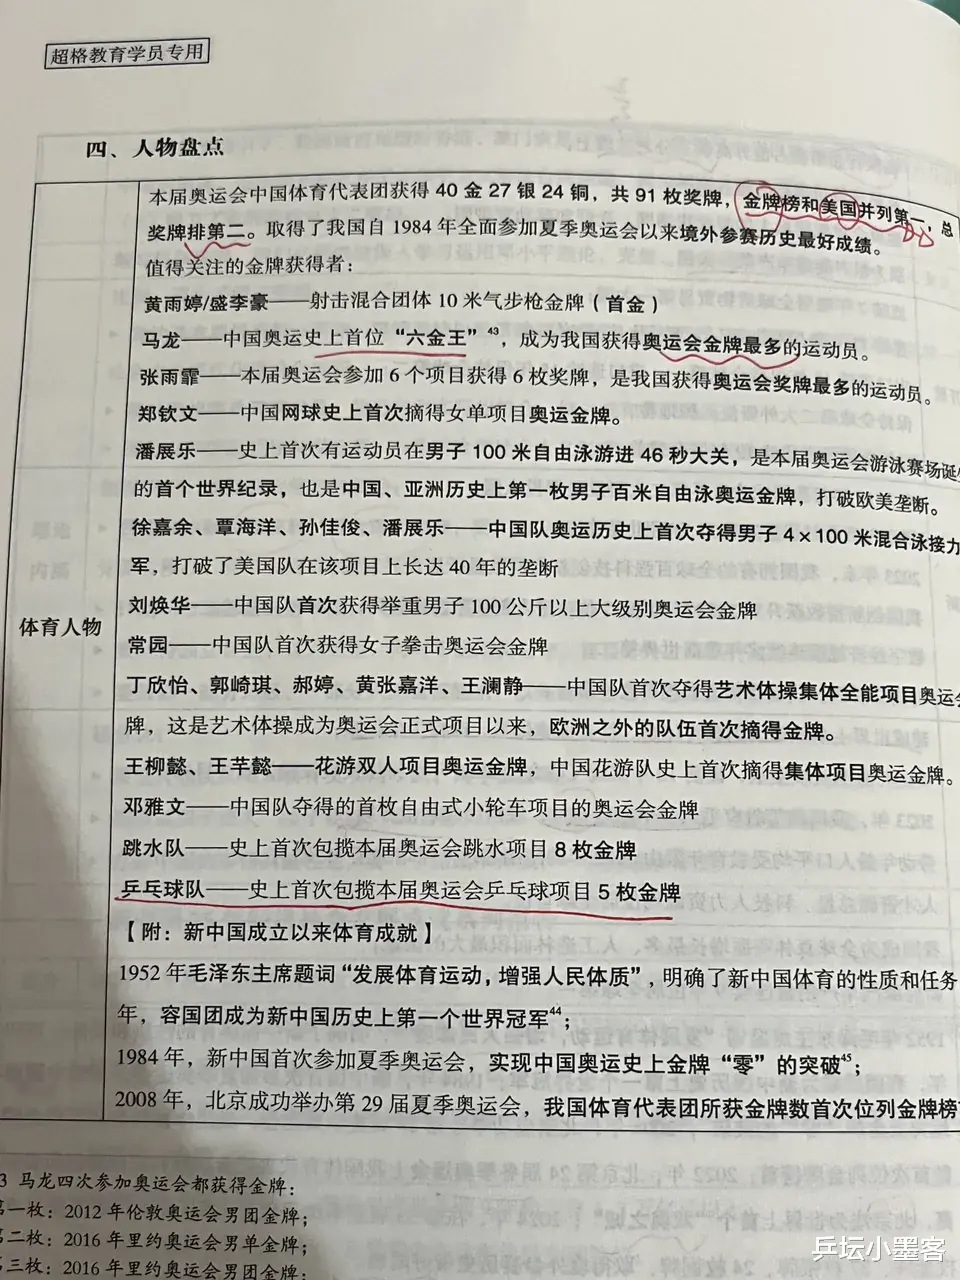 超格教育学员专用
四、人物盘点
本届奥运会中国体育代表团获得 40 金 27 银 24 铜，共 91 枚奖牌，金牌榜和美国并列第一，总
奖牌排第二。取得了我国自 1984 年全面参加夏季奥运会以来境外参赛历史最好成绩。
值得关注的金牌获得者：
黄雨婷/盛李豪——射击混合团体 10 米气步枪金牌（首金）
马龙——中国奥运史上首位“六金王”43，成为我国获得奥运会金牌最多的运动员。
张雨霏——本届奥运会参加 6 个项目获得 6 枚奖牌，是我国获得奥运会奖牌最多的运动员。
郑钦文——中国网球史上首次摘得女单项目奥运金牌。
潘展乐——史上首次有运动员在男子 100 米自由泳游进 46 秒大关，是本届奥运会游泳赛场诞
的首个世界纪录，也是中国、亚洲历史上第一枚男子百米自由泳奥运金牌，打破欧美垄断。
徐嘉余、覃海洋、孙佳俊、潘展乐——中国队奥运历史上首次夺得男子 4×100 米混合泳接力
军，打破了美国队在该项目上长达 40 年的垄断
刘焕华——中国队首次获得举重男子 100 公斤以上大级别奥运会金牌
体育人物
常园——中国队首次获得女子拳击奥运会金牌
丁欣怡、郭崎琪、郝婷、黄张嘉洋、王澜静——中国队首次夺得艺术体操集体全能项目奥运会
牌，这是艺术体操成为奥运会正式项目以来，欧洲之外的队伍首次摘得金牌。
王柳懿、王芊懿——花游双人项目奥运金牌，中国花游队史上首次摘得集体项目奥运金牌。
邓雅文——中国队夺得的首枚自由式小轮车项目的奥运会金牌
跳水队——史上首次包揽本届奥运会跳水项目 8 枚金牌
乒乓球队——史上首次包揽本届奥运会乒乓球项目 5 枚金牌
【附：新中国成立以来体育成就】
1952 年毛泽东主席题词“发展体育运动，增强人民体质”，明确了新中国体育的性质和任务
年，容国团成为新中国历史上第一个世界冠军44；
1984 年，新中国首次参加夏季奥运会，实现中国奥运史上金牌“零”的突破45；
2008 年，北京成功举办第 29 届夏季奥运会，我国体育代表团所获金牌数首次位列金牌榜
3 马龙四次参加奥运会都获得金牌：
第一枚：2012 年伦敦奥运会男团金牌；
第二枚：2016 年里约奥运会男单金牌；
第三枚：2016 年里约奥运会男团金牌：
乒坛小墨客